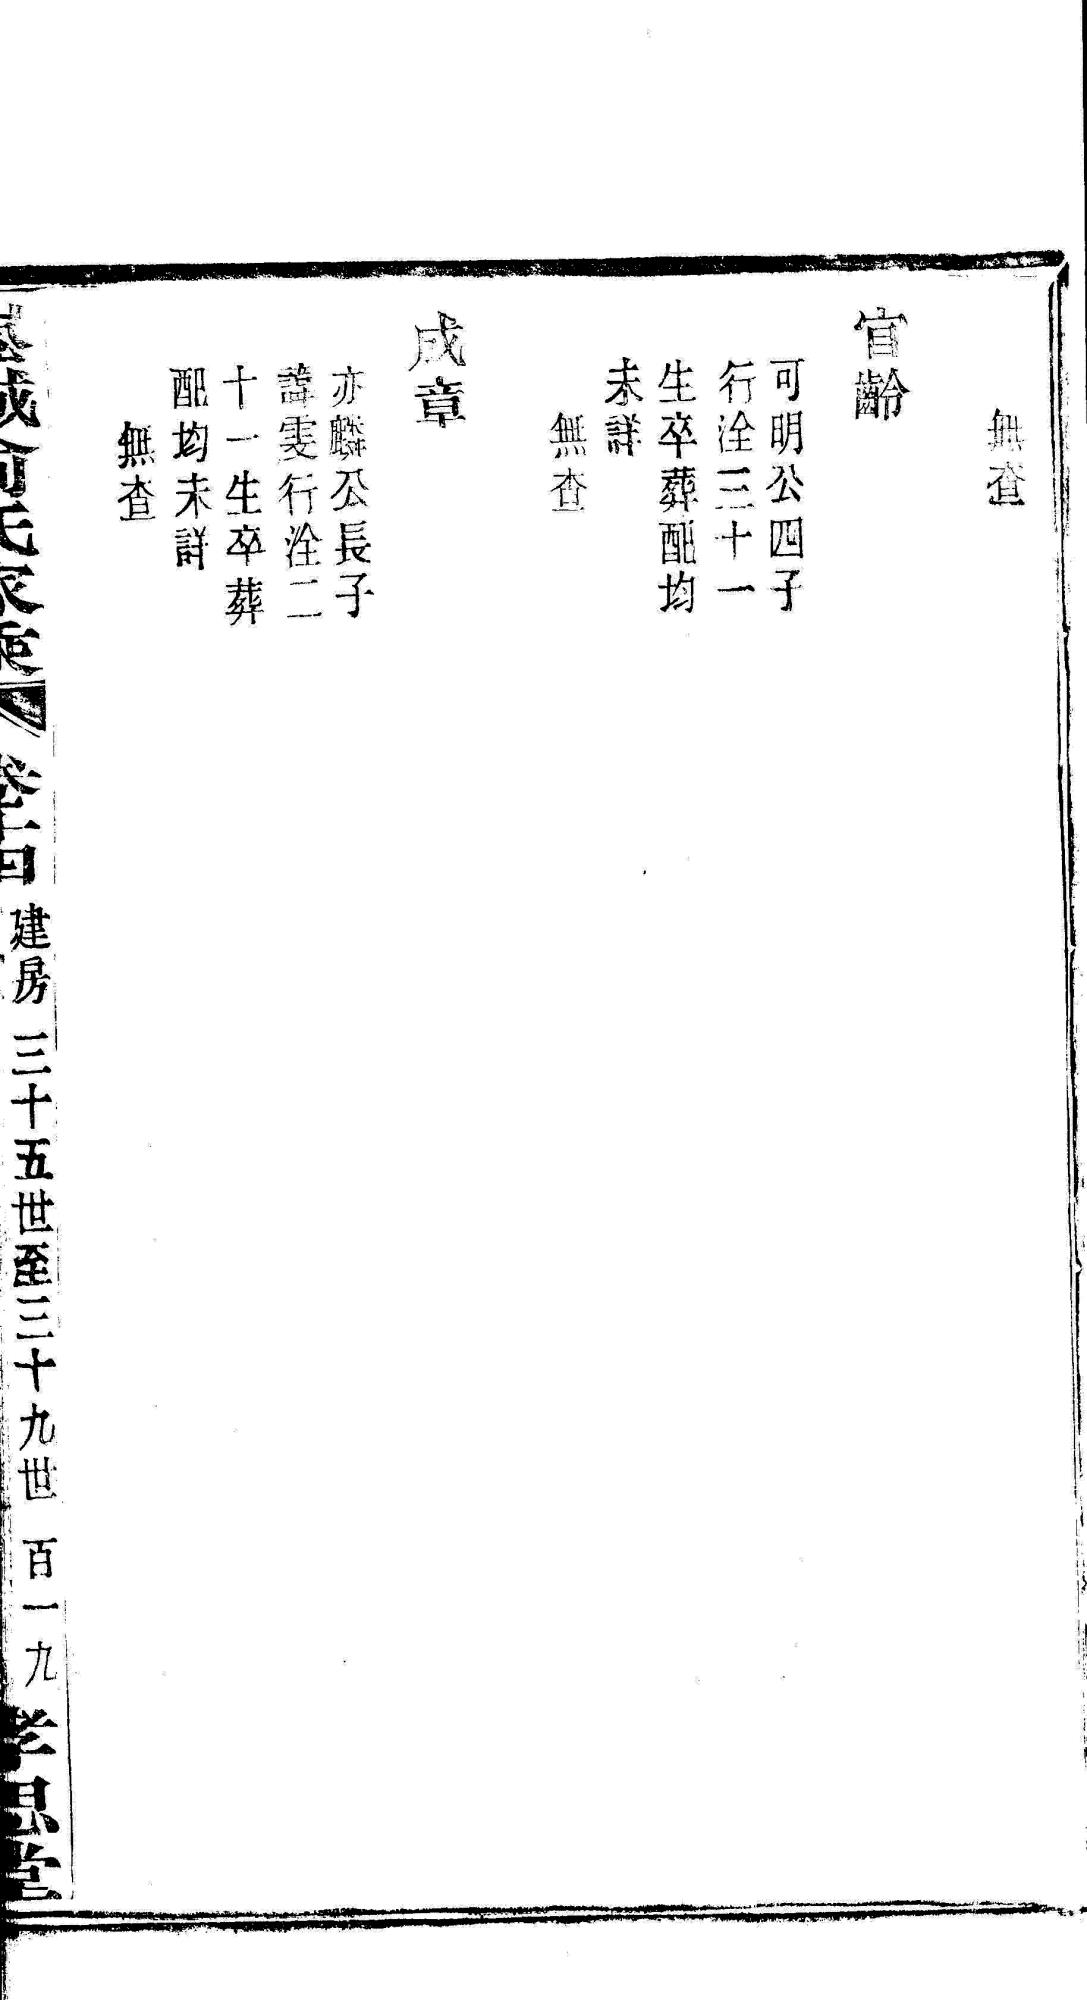 無查
官齡
可明公四子
行洤三十一
生卒葬配均
未詳
無查
成章
亦麟公長子
諱雯行洤二
十一生卒葬
配均未詳
無查
城俞氏家乘 卷十四 建房 三十五世至三十九世 百一九 孝思堂